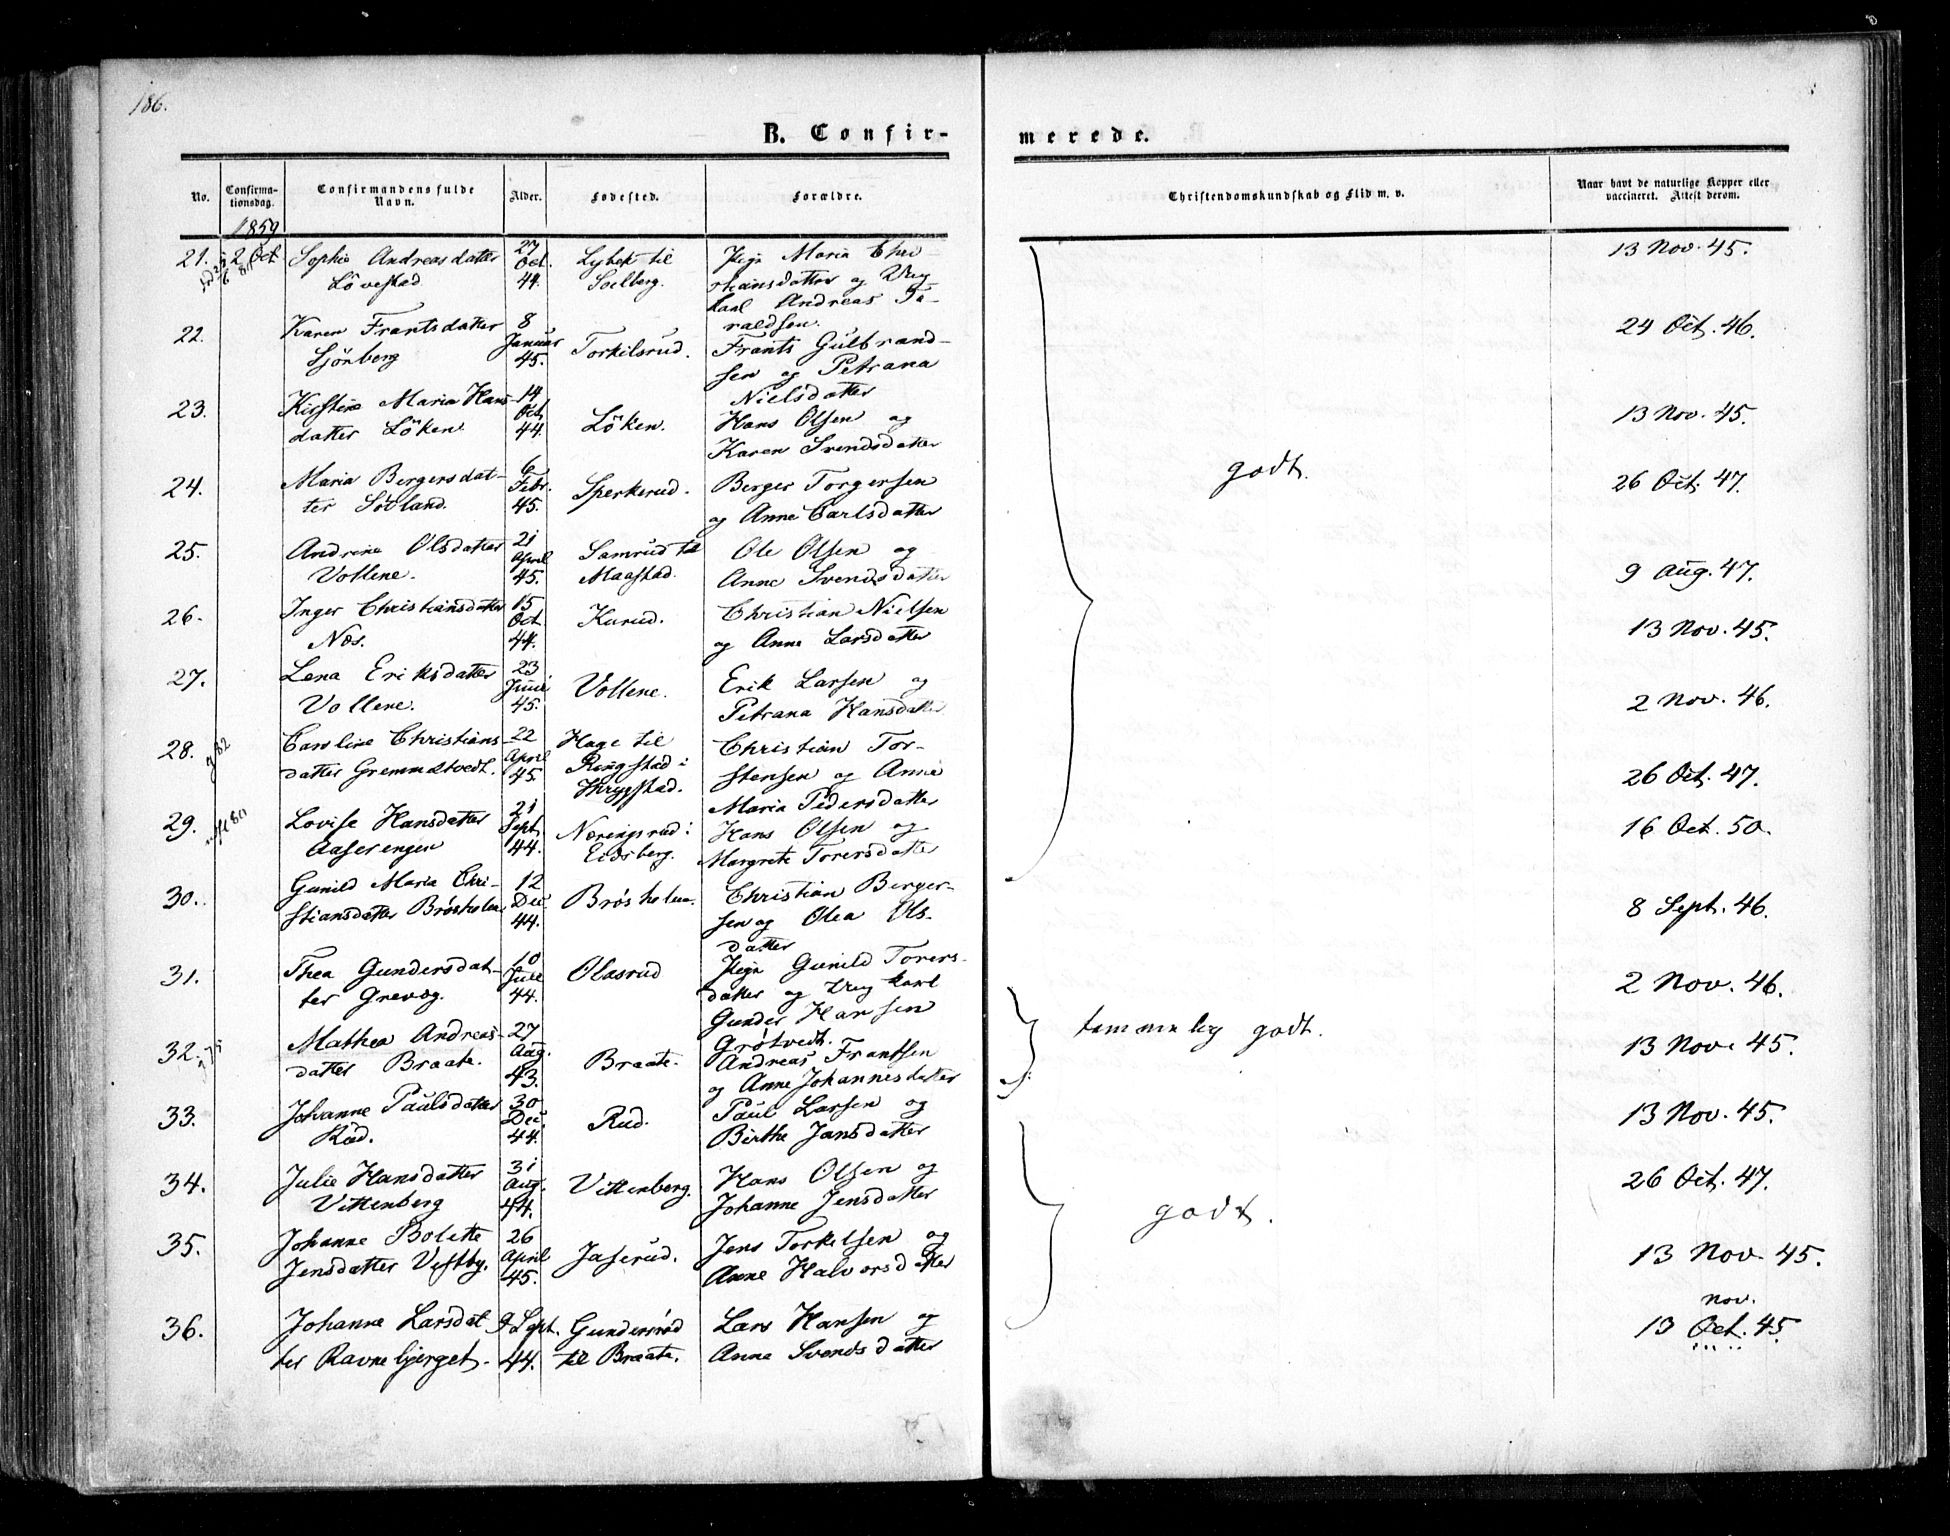 186.
B. Confir-
merede.
No.
Confirma-
tionsdag.
Confirmandens fulde
Navn.
Alder.
Fødested.
Forældre.
Christendomskundskab og Flid m. v.
Naar havt de naturlige Kopper eller
vaccineret. Attest derom.
1859
21. 2 Oct. Sophie Andreasdatter 27 Lybek til Pige Maria Chri- 13 Nov. 45.
Lövestad Oct. Soelberg. stiansdatter og Ung-
44. karl Andreas Ta-
raldsen.
22. Karen Frantsdatter 8 Torkilsrud. Frants Gulbrand- 24 Oct. 46.
Sjönberg Januar sen og Petrana
45. Nielsdatter
23. Kirstine Maria Hans- 14 Löken. Hans Olsen og 13 Nov. 45.
datter Löken. Oct. Karen Svendsdatter
44.
24. Maria Bergersdat- 6 Sperkerud. Berger Torgersen godt. 26 Oct. 47.
ter Sötland. Febr. og Anne Carlsdatter
45.
25. Andrine Olsdatter 21 Samrud til Ole Olsen og 9 Aug. 47.
Vollene. April Maastad. Anne Svendsdatter
45.
26. Inger Christiansdatter 15 Kurud. Christian Nielsen 13 Nov. 45.
Næs. Oct. og Anne Larsdatter
44.
27. Lena Eriksdatter 23 Vollene. Erik Larsen og 2 Nov. 46.
Vollene. Juni Petrana Hansdatter
45.
28. Caroline Christians- 22 Hage til Christian Tor- 26 Oct. 47.
datter Gremmestvedt. April Ringstad i stensen og Anne
45. Thrygstad. Maria Pedersdatter
29. Lovise Hansdatter 21 Næringsrud i Hans Olsen og 16 Oct. 50.
Aaserengen Sept. Eidsberg. Margrete Torersdatter
44.
30. Gunild Maria Chri- 12 Brøsholen. Christian Berger- 8 Sept. 46.
stiansdatter Brøsholen Dec. sen og Olea Ols-
44. datter
31. Thea Gundersdat- 10 Olasrud Pige Gunild Torers- 2 Nov. 46.
ter Grevog. Juli datter og Ungkarl
44. Gunder Hansen
Grøtvedt.
32. Mathea Andreas- 27 Braate. Andreas Frantsen temmelig godt. 13 Nov. 45.
datter Braate. Aug. og Anne Johannesdatter
43.
33. Johanne Paulsdatter 30 Rud. Paul Larsen og 13 Nov. 45.
Röd. Dec. Birthe Jansdatter
44.
34. Julie Hansdatter 31 Vittenberg. Hans Olsen og godt. 26 Oct. 47.
Vittenberg Aug. Johanne Jensdatter
44.
35. Johanne Bolette 26 Jaserud. Jens Torkelsen og 13 Nov. 45.
Jensdatter Vestby. April Anne Halvorsdatter
45.
36. Johanne Larsdat 9 Sept. Gundersröd Lars Hansen og nov.
ter Ravnebjerget. 44. til Braate. Anne Svendsdatter 13 Oct. 45.